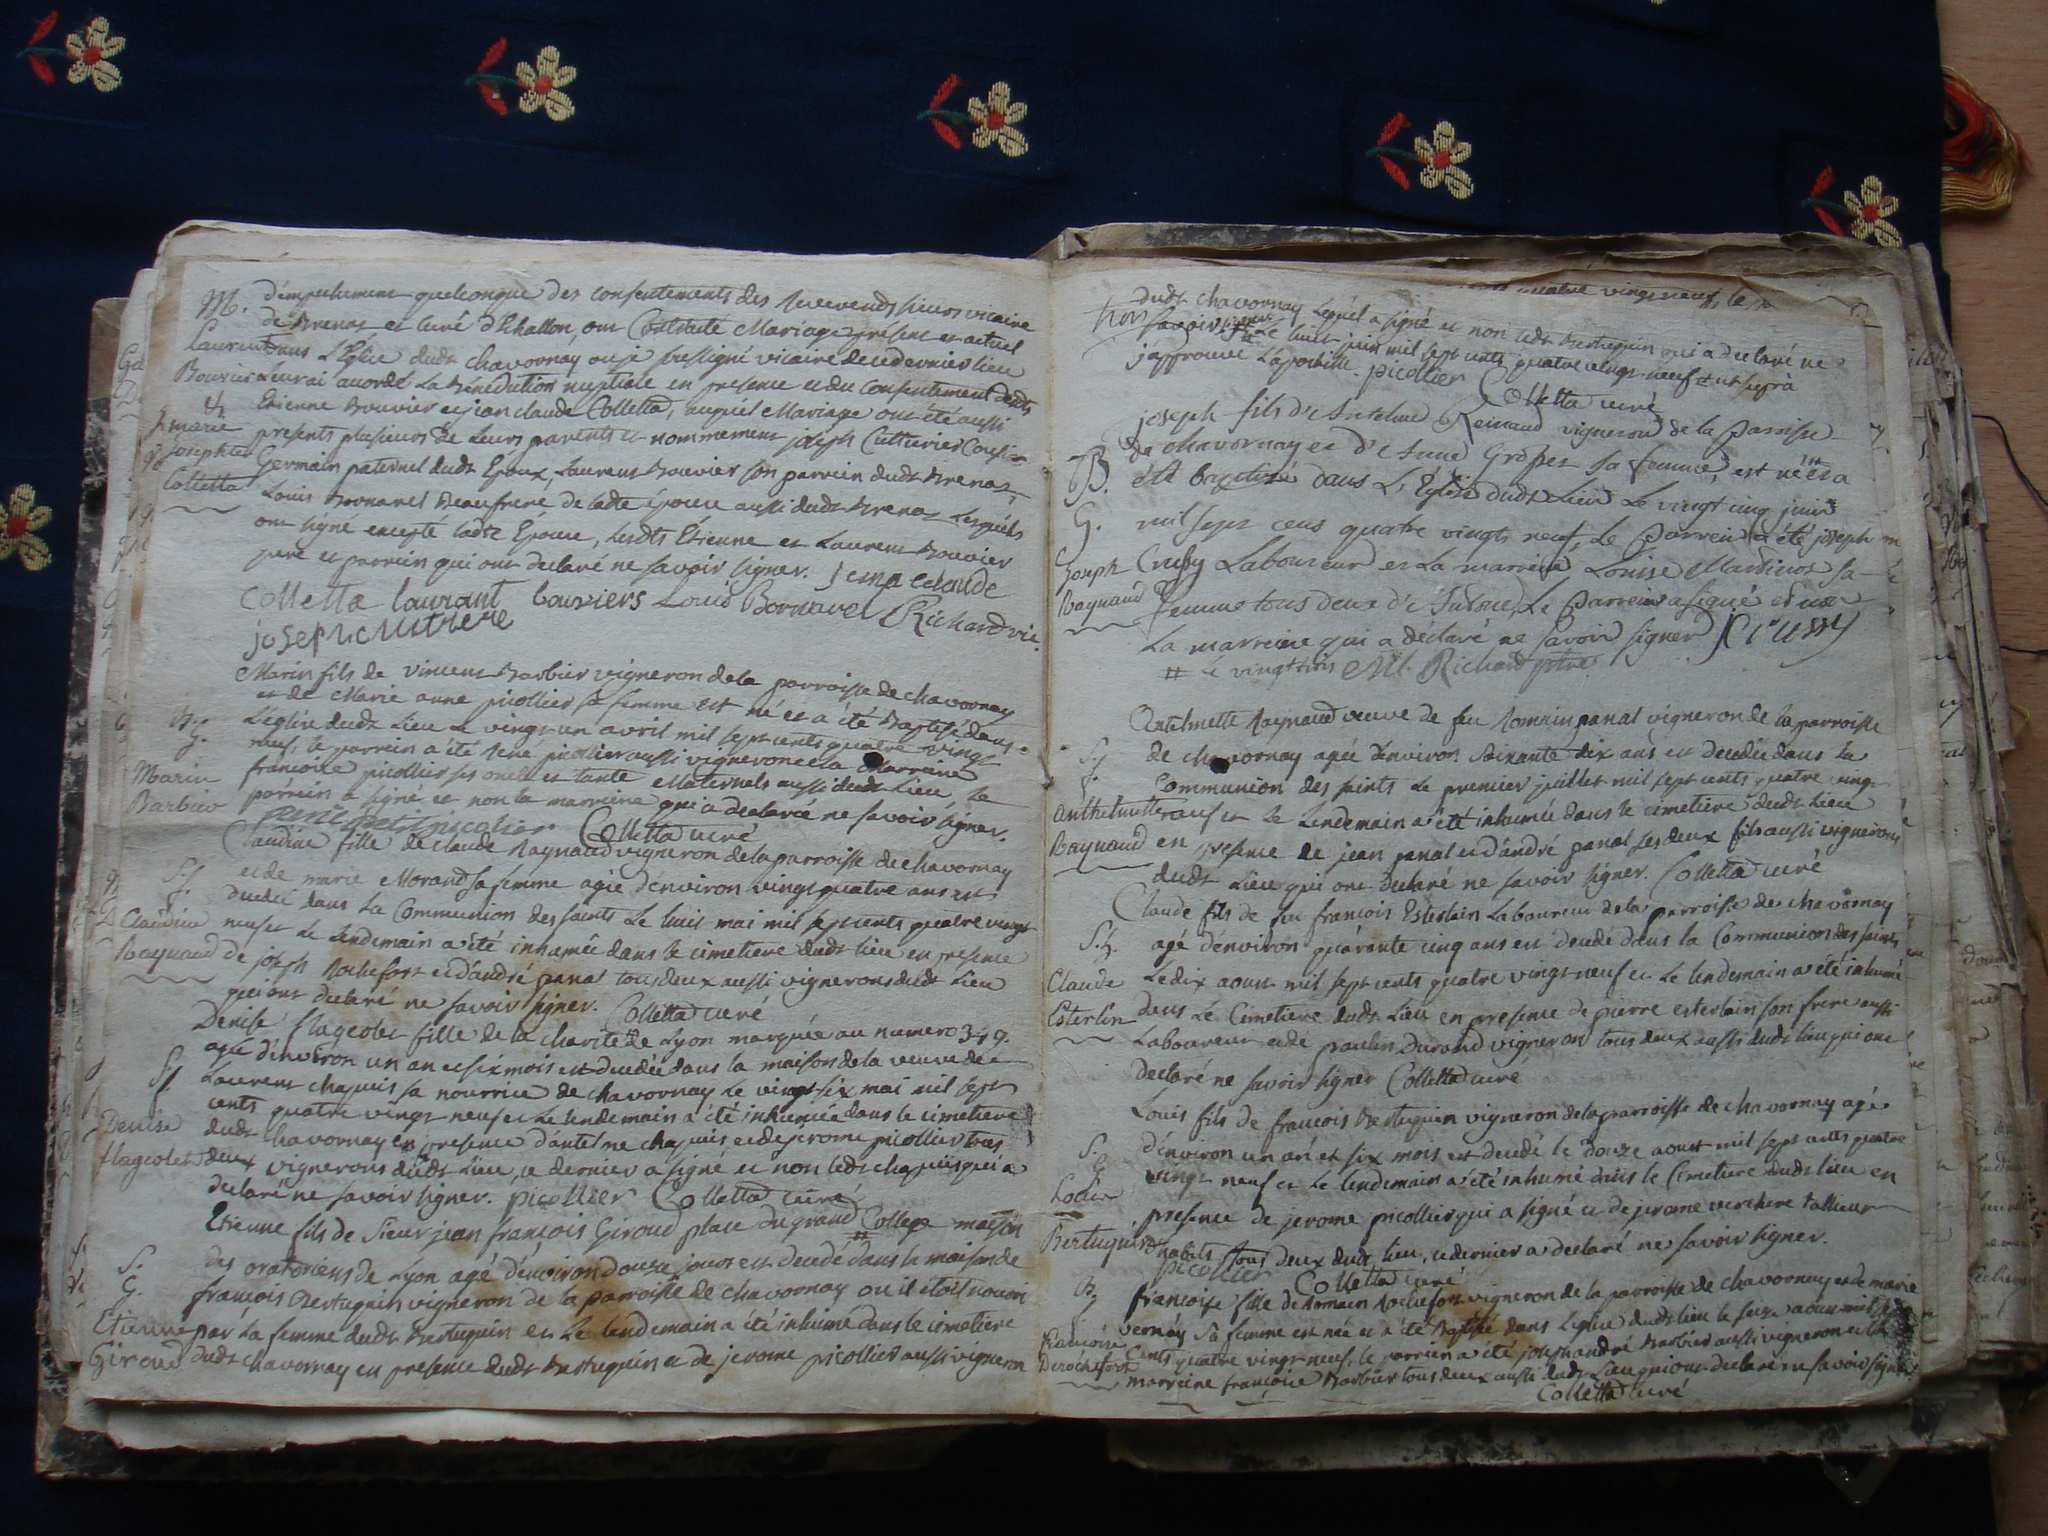 M.
d'empechement quelconque des consentements des Reverends sieurs vicaire
de Brenaz et curé d'Echallon, ont Contracté Mariage present et actuel
Laurent dans L'Eglise dudt chavornay ou je soussigné vicaire de ce dernier lieu
Bouvier Leur ai accordé La Benediction nuptiale en presence et du Consentement desdts
&
Etienne Bouvier et jean claude Colletta, auquel Mariage ont été aussi
marie presents plusieurs de Leurs parents et nommement joseph Cutturier Cousin
josephte Germain paternel dudt Epoux, Laurent Bouvier son parrein dudt Brenaz,
Colletta Louis Bornarel Beaufrere de ladte épouse aussi dudt Brenaz Lesquels
ont signé excepté ladte Epouse, Lesdts Etienne et Laurent Bouvier
pere et parrein qui ont declaré ne savoir signer. jean claude
Colletta laurant bouviers Louis Bornarel Richard vic.
joseph cutturiere
Marin fils de vincent Barbier vigneron de la parroisse de chavornay
et de Marie anne picollier sa femme est né et a été Baptisé dans
B. L'eglise dudt Lieu Le vingt un avril mil sept cents quatre vingt
G. neuf, le parrein a été René picollier aussi vigneron et la Marreine
Marin francoise picollier ses oncle et tante Maternels aussi dudt Lieu le
Barbier parrein a signé et non la marreine qui a declaré ne savoir signer.
picollier Colletta curé
Claudine fille de claude Raynaud vigneron de la parroisse de chavornay
S. et de marie Morand sa femme agée d'environ vingt quatre ans est
G. decedée dans La Communion des saints Le huit mai mil sept cents quatre vingt
Claudine neuf et Le Lendemain a été inhumée dans le cimetiere dudt Lieu en presence
Raynaud de joseph Rochefort et d'andré panat tous deux aussi vignerons dudt Lieu
qui ont declaré ne savoir signer. Colletta curé
Denise flageolet fille de la charité de Lyon marquée au numero 349.
agée d'environ un an et six mois est decedée dans la maison de la veuve de
S. Laurent chapuis sa nourrice de chavornay Le vingt six mai mil sept
G. cents quatre vingt neuf et Le lendemain a été inhumée dans le cimetiere
Denise dudt chavornay en presence d'antelme chapuis et de jerome picollier tous
flageolet deux vignerons dudt Lieu, ce dernier a signé et non ledt chapuis qui a
declaré ne savoir signer. picollier Colletta curé
Etienne fils de Sieur jean françois Giroud place du grand College maison
S. des oratoriens de Lyon agé d'environ douze jours est decedé dans la maison de
G. françois Bertuquin vigneron de la parroisse de chavornay ou il etoit nourri
Etienne par La femme dudt Bertuquin et Le Lendemain a été inhumé dans le cimetiere
Giroud dudt chavornay en presence dudt Bertuquin et de jerome picollier aussi vigneron
quatre vingt neuf, le
trois
dudt chavornay Lequel a signé et non ledt Bertuquin qui a declaré ne
savoir signer # Le huit juin mil sept cents quatre vingt neuf #
j'approuve L'apostille. picollier Colletta curé
joseph fils d'Anthelme Reinaud vigneron de la Parroisse
de chavornay et d'Anne Gropet sa femme, est né # et a
B. été baptisé dans L'Eglise dudt Lieu Le vingt cinq juin
G. mil sept cens quatre vingts neuf, Le Parrein a été joseph
joseph Crussy Laboureur et La marreine Louise Martinot sa
Raynaud femme tous deux Le Parrein a signé et non
La marreine qui a déclaré ne savoir signer j Crussy
# Le vingt trois M. Richard ptre
Antelmette Raynaud veuve de feu Romain panat vigneron de la parroisse
S. de chavornay agée d'environ Soixante dix ans est decedée dans La
G. Communion des saints Le premier juillet mil sept cents quatre vingt
anthelmette neuf et Le Lendemain a été inhumée dans le cimetiere dudt Lieu
Raynaud en presence de jean panat et d'andré panat ses deux fils aussi vignerons
dudt Lieu qui ont declaré ne savoir signer. Colletta curé
Claude fils de feu françois Esterlain Laboureur de la parroisse de chavornay
S. G. agé d'environ quarante cinq ans est decedé dans la Communion des saints
Claude Le dix aoust mil sept cents quatre vingt neuf et Le lendemain a été inhumé
Esterlin dans Le Cimetiere dudt Lieu en presence de pierre esterlain son frere aussi
Laboureur et de paulin Durand vigneron tous deux aussi dudt lieu qui ont
declaré ne savoir signer Colletta curé
Louis fils de françois Bertuquin vigneron de la parroisse de chavornay agé
S. d'environ un an et six mois est decedé le douze aoust mil sept cents quatre
G. vingt neuf et Le lendemain a été inhumé dans le Cimetiere dudt lieu en
Louis presence de jerome picollier qui a signé et de jerome verchere tallieur
Bertuquin d'habits tous deux dudt lieu, ce dernier a declaré ne savoir signer.
picollier Colletta curé
B. francoise fille de Romain Rochefort vigneron de la parroisse de chavornay et de marie
G. vernay sa femme est née et a été Baptisée dans L'eglise dudt lieu le seize aoust mil sept
francoise Cents quatre vingt neuf, le parrein a été joseph andré Barbier aussi vigneron et la
Derochefort marreine francoise Barbier tous deux aussi dudt Lieu qui ont declaré ne savoir signer
Colletta curé